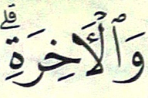 وَٱلْأَخِرَةِۗ